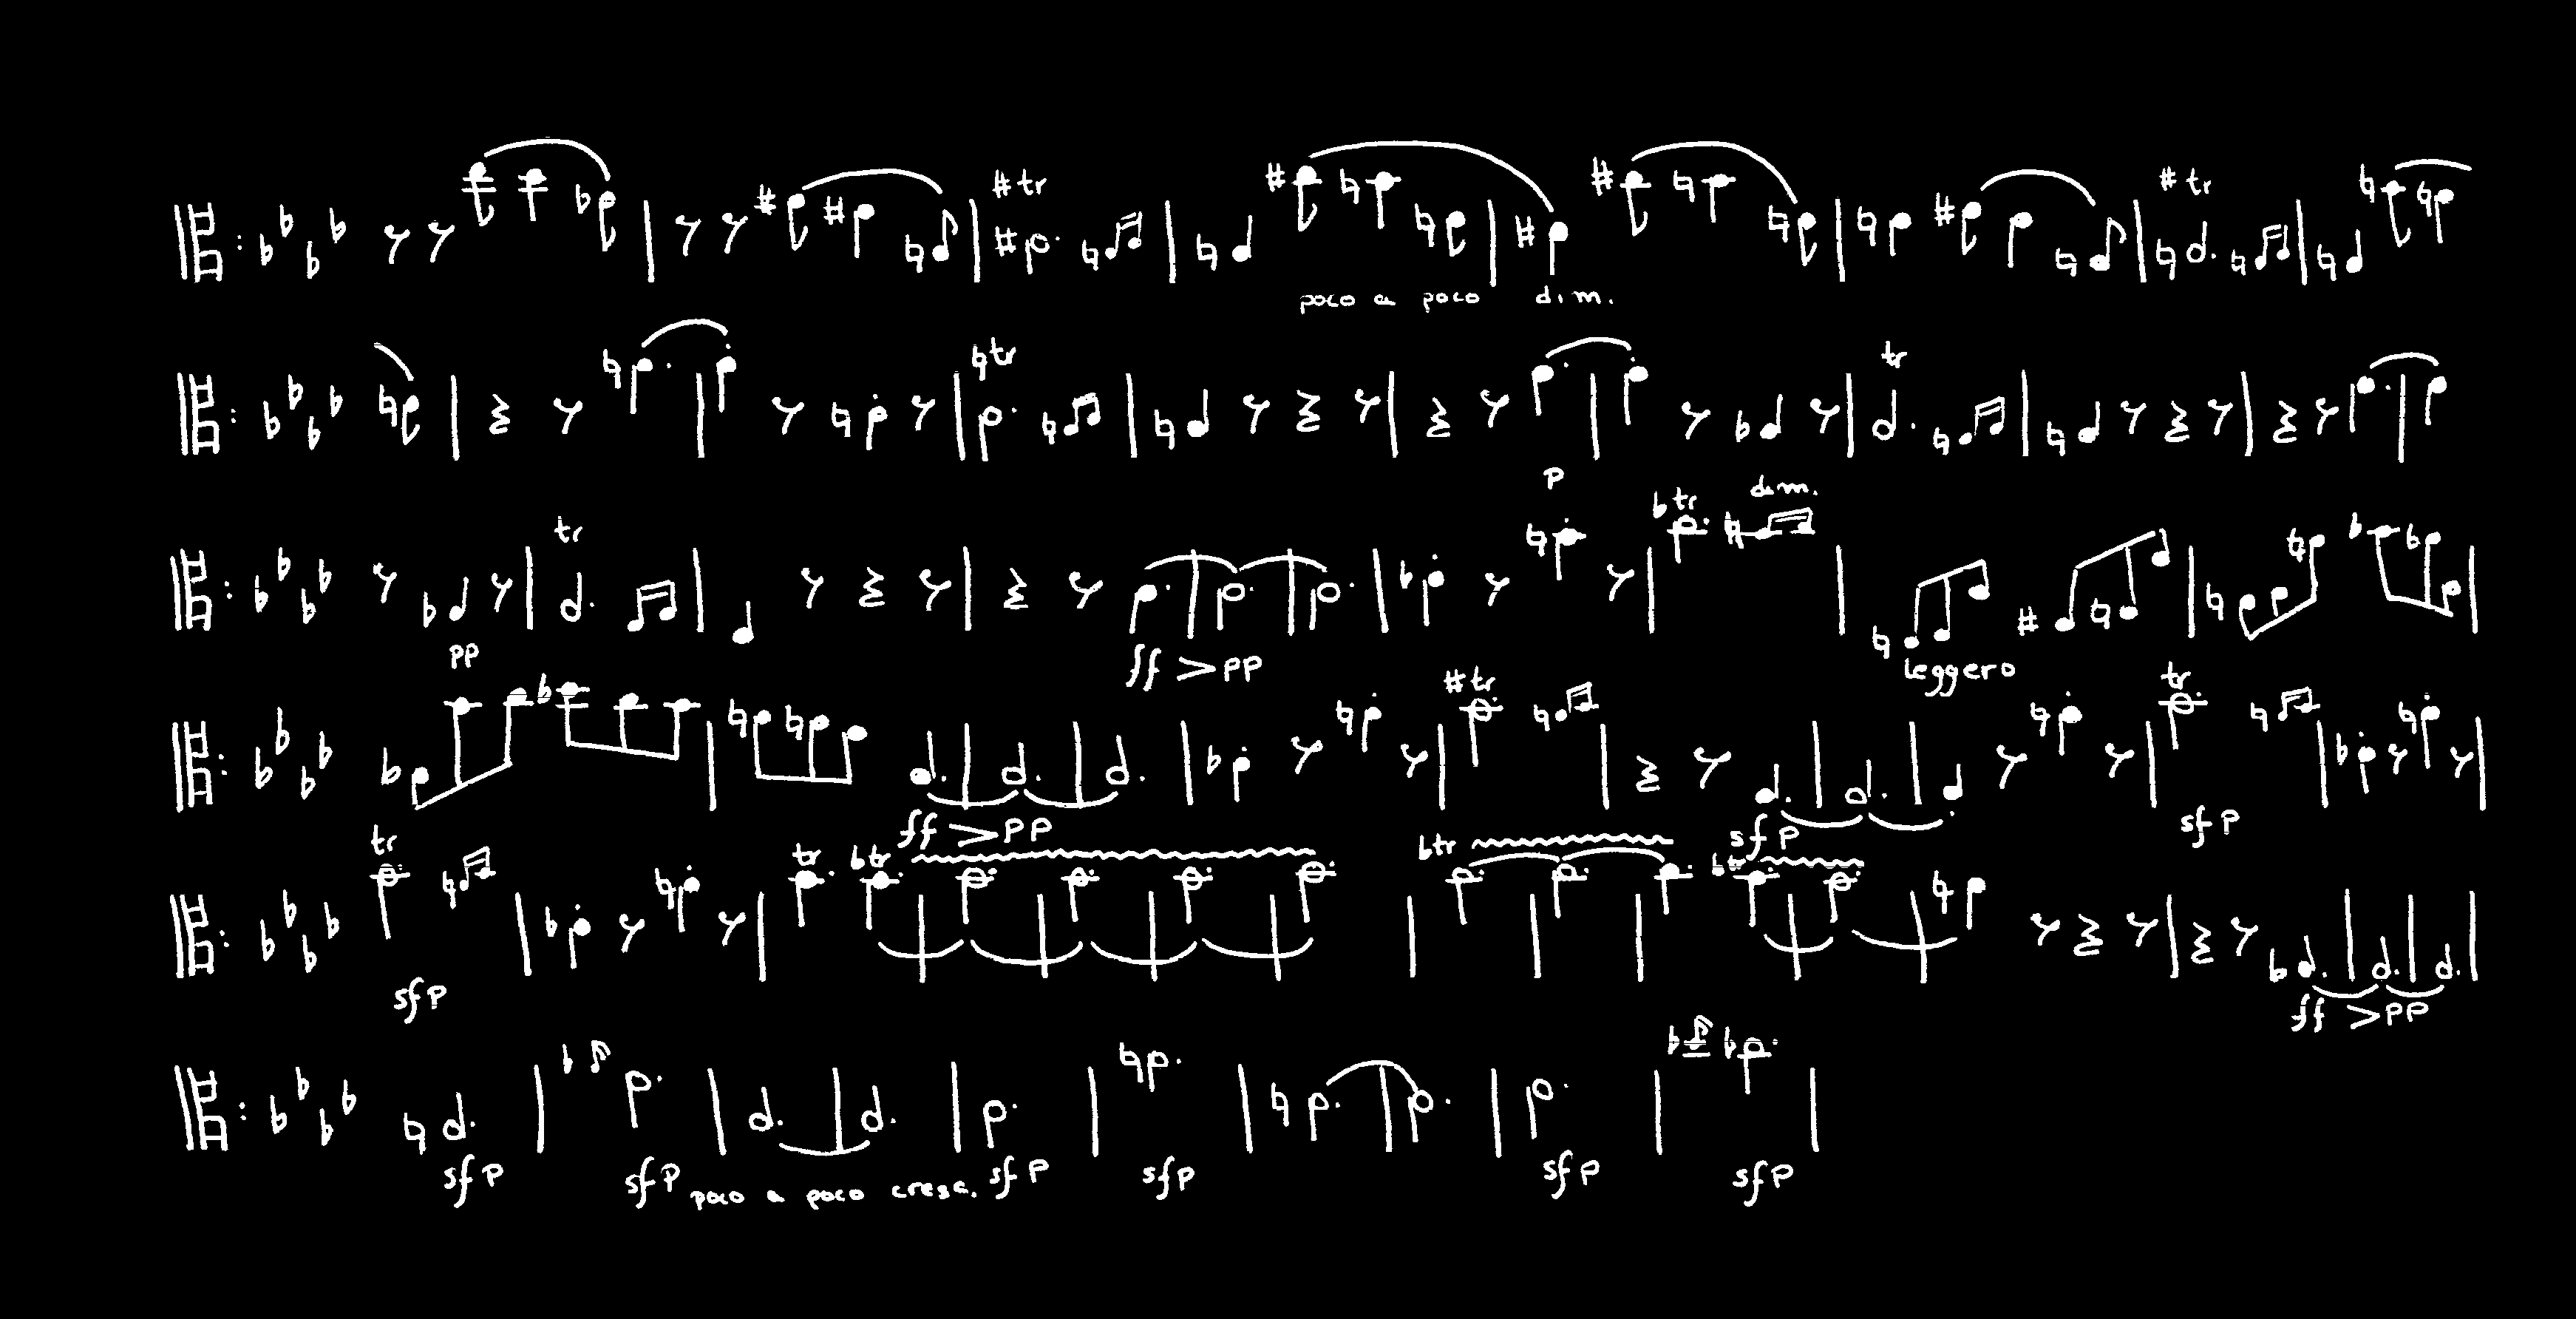 tr tr
poco a poco dim.
tr tr
p
tr tr dim.
pp ff pp leggero
tr tr
ff pp sf p sf p
tr tr tr tr tr
sf p ff pp
sf p sf p poco a poco cresc. sf p sf p sf p sf p